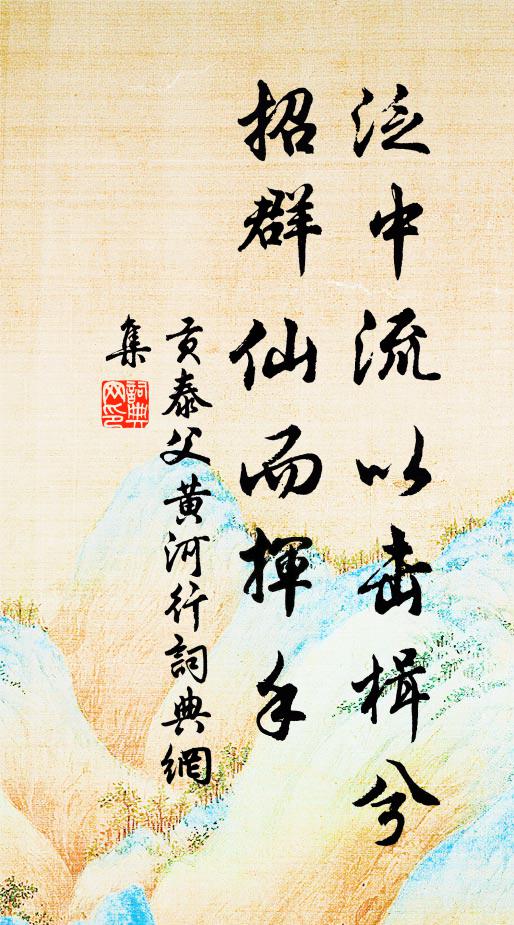 泛中流以击楫兮
招群仙而揮手
贡泰父黄河行詞典網
集
詞典
网印